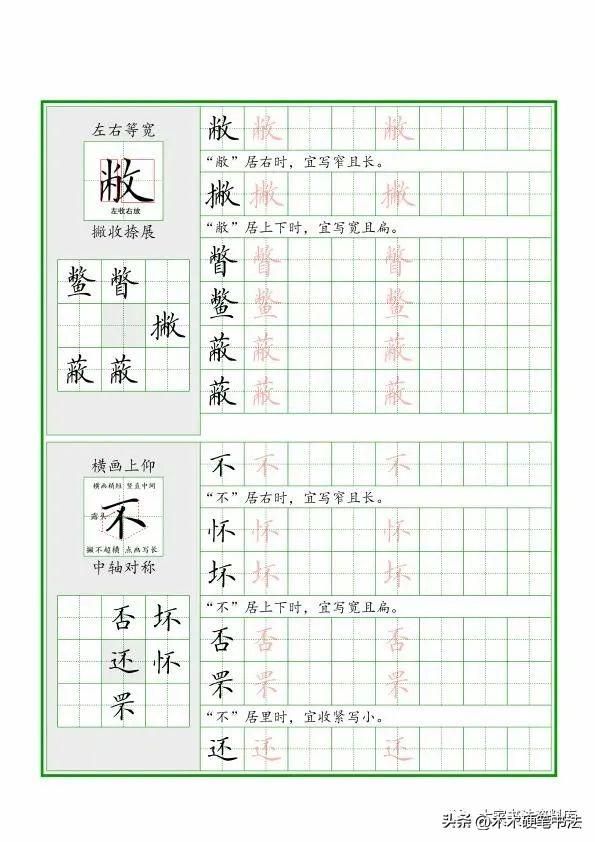 左右等宽
敝
左收右放
撇收捺展
鳖 瞥
撇
蔽 蔽
敝 敝 敝
“敝”居右时，宜写窄且长。
撇 撇 撇
“敝”居上下时，宜写宽且扁。
瞥 瞥 瞥
鳖 鳖 鳖
蔽 蔽 蔽
蔽 蔽 蔽
横画上仰
横画稍短 竖直中间
露头
不
撇不超横 点画写长
中轴对称
否 坏
还 怀
罘
不 不 不
“不”居右时，宜写窄且长。
怀 怀 怀
坏 坏 坏
“不”居上下时，宜写宽且扁。
否 否 否
罘 罘 罘
“不”居里时，宜收紧写小。
还 还 还
头条 @木不硬笔书法